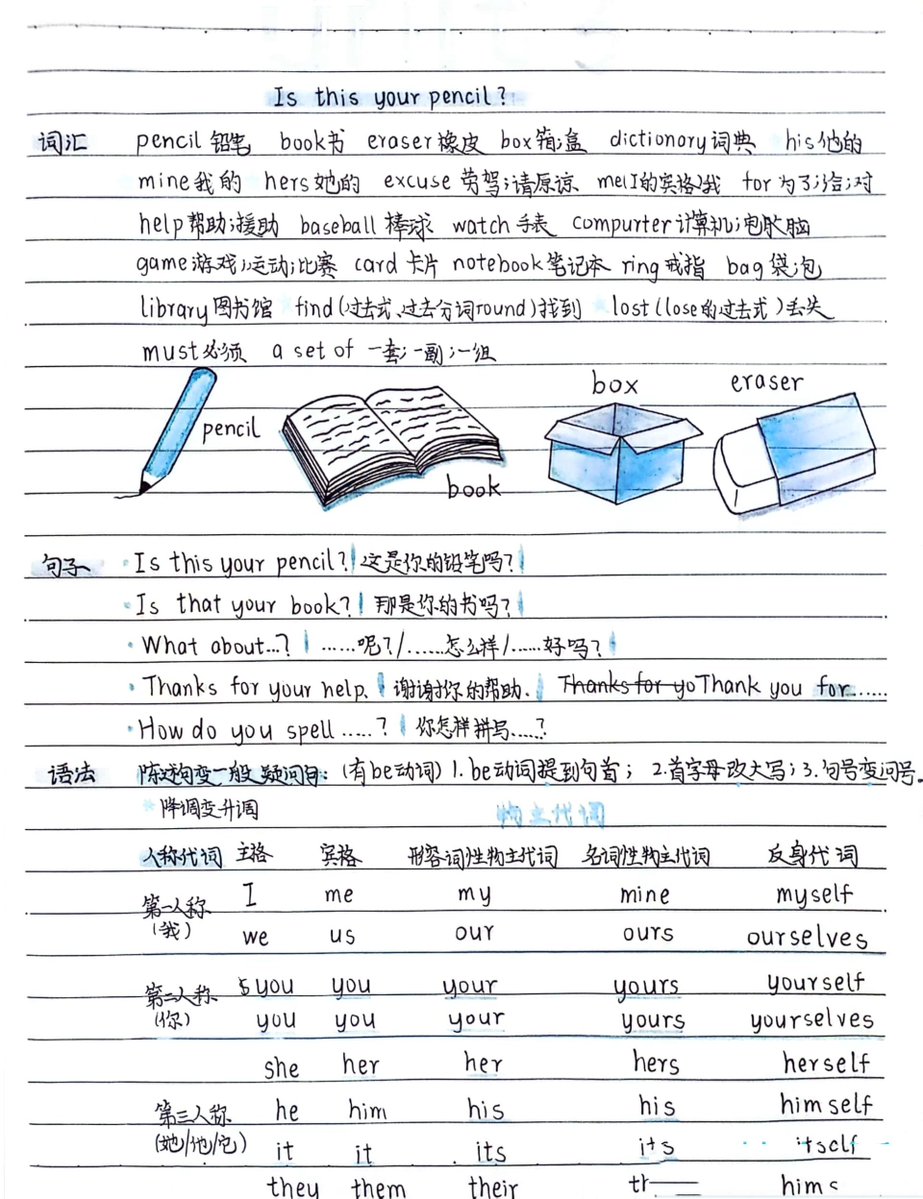 Is this your pencil?
词汇 pencil 铅笔 book书 eraser橡皮 box箱;盒 dictionory词典 his他的
mine我的 hers她的 excuse 劳驾;请原谅 me(I的宾格)我 for 为了;给;对
help帮助;援助 baseball 棒球 watch 手表 compurter计算机;电脑
game游戏;运动;比赛 card 卡片 notebook笔记本 ring戒指 bag袋;包
library图书馆 find(过去式、过去分词round)找到 lost(lose的过去式)丢失
must必须 a set of 一套;一副;一组
box eraser
pencil
book
句子 Is this your pencil? 这是你的铅笔吗?
Is that your book? 那是你的书吗?
What about...? ......呢?/......怎么样/......好吗?
Thanks for your help. 谢谢你的帮助. Thanks for yo Thank you for......
How do you spell .....? 你怎样拼写....?
语法 陈述句变一般疑问句:(有be动词) 1.be动词提到句首; 2.首字母改大写;3.句号变问号.
*降调变升调 物主代词
人称代词 主格 宾格 形容词性物主代词 名词性物主代词 反身代词
第一人称 I me my mine myself
(我) we us our ours ourselves
第二人称 you you your yours yourself
(你) you you your yours yourselves
she her her hers herself
第三人称 he him his his himself
(她/他/它) it it its its itself
they them their